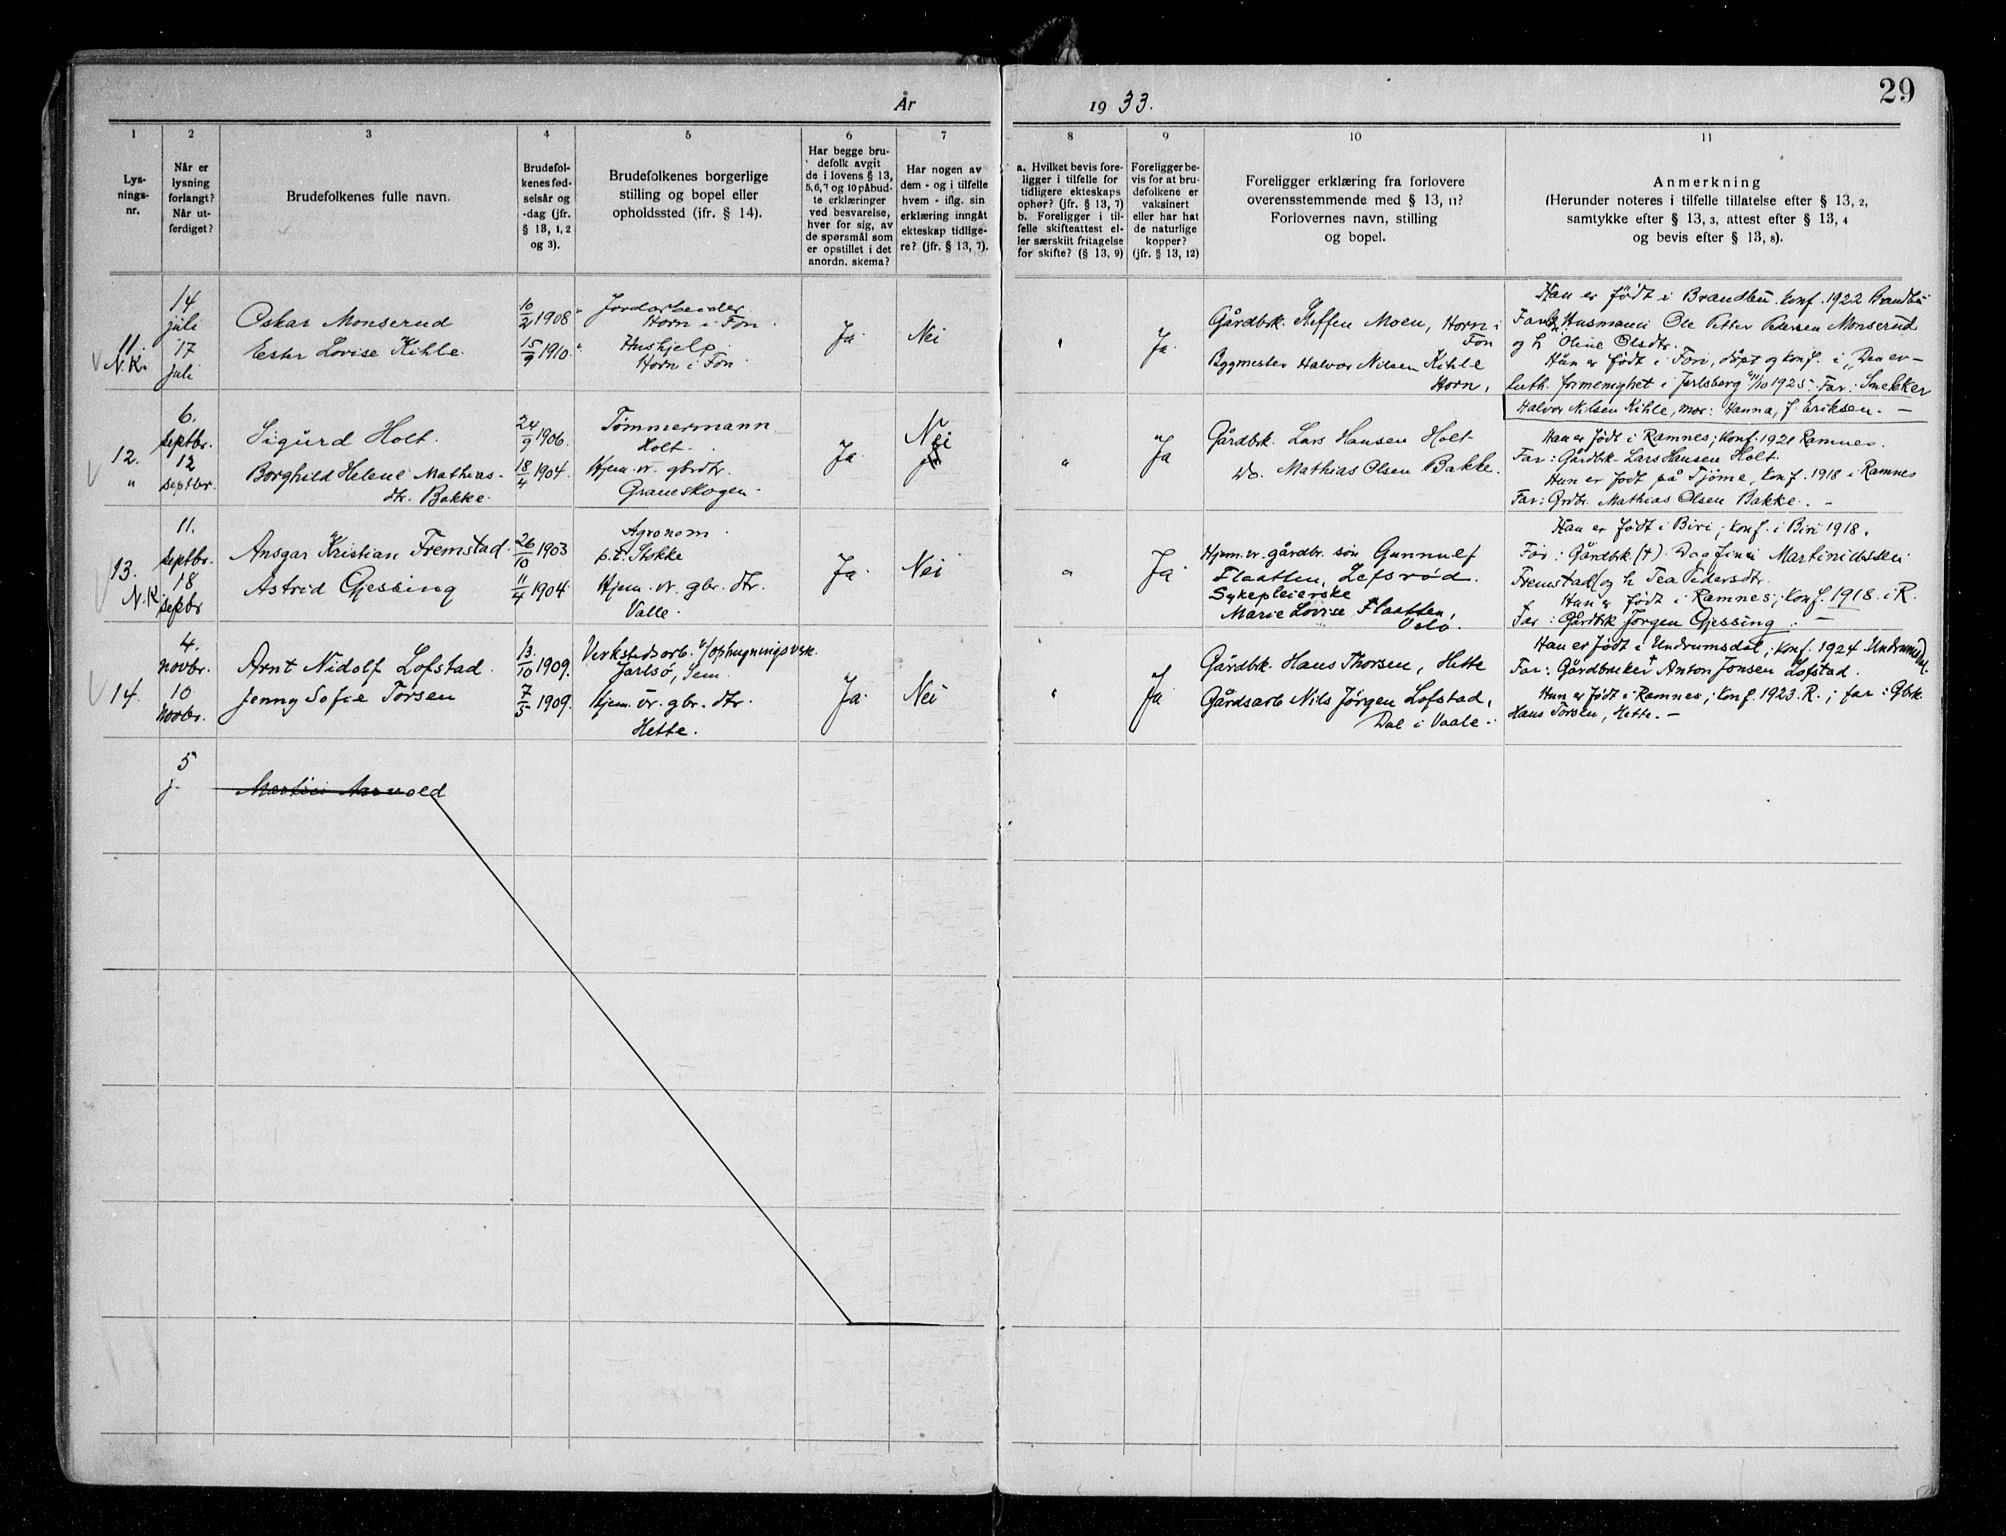 29
År 1933.
1 2 3 4 5 6 7 8 9 10 11
Lys-
nings-
nr.
Når er
lysning
forlangt?
Når ut-
ferdiget?
Brudefolkenes fulle navn.
Brudefol-
kenes fød-
selsår og
-dag (jfr.
§ 13, 1, 2
og 3).
Brudefolkenes borgerlige
stilling og bopel eller
opholdssted (jfr. § 14).
Har begge bru-
defolk avgit
de i lovens § 13,
5, 6, 7 og 10 påbud-
te erklæringer
ved besvarelse,
hver for sig, av
de spørsmål som
er opstillet i det
anordn. skema?
Har nogen av
dem - og i tilfelle
hvem - iflg. sin
erklæring inngått
ekteskap tidlige-
re? (jfr. § 13, 7).
a. Hvilket bevis fore-
ligger i tilfelle for
tidligere ekteskaps
ophør? (jfr. § 13, 7)
b. Foreligger i til-
felle skifteattest el-
ler særskilt fritagelse
for skifte? (§ 13, 9)
Foreligger be-
vis for at bru-
defolkene er
vaksinert
eller har hat
de naturlige
kopper?
(jfr. § 13, 12)
Foreligger erklæring fra forlovere
overensstemmende med § 13, 11?
Forlovernes navn, stilling
og bopel.
Anmerkning
(Herunder noteres i tilfelle tillatelse efter § 13, 2,
samtykke efter § 13, 3, attest efter § 13, 4
og bevis efter § 13, 8).
11.
N.K.
14
juli
17
juli
Oskar Monserud
Ester Lovise Kihle.
10/2 1908
15/9 1910
Jordarbeider
Horn i Fon.
Hushjelp.
Horn i Fon
Ja
Nei
"
Ja
Gårdbrk. Steffen Moen, Horn i
Fon
Byggmester Halvor Nilsen Kihle
Horn,
Han er født i Brandbu. Konf. 1922 Brandbu
Far: Husmann Ole Petter Pedersen Monserud
og h. Oline Olsdtr.
Hun er født i Fon, døpt og konf. i "Den ev-
luth. frimenighet i Jarlsberg" 11/10 1925. Far: Snekker
Halvor Nilsen Kihle, mor: Hanna, f. Eriksen. -
12.
"
6.
septbr.
12
septbr.
Sigurd Holt.
Borghild Helene Mathias-
dtr. Bakke.
24/9 1906.
18/4 1904.
Tømmermann
Holt.
Hjem. vr. gbrdtr.
Graneskogen
Ja
Nei
"
Ja
Gårdbk. Lars Hansen Holt
Do. Mathias Olsen Bakke.
Han er født i Ramnes; Konf. 1921 Ramnes.
Far: Gårdbk Lars Hansen Holt.
Hun er født på Tjøme, Konf. 1918 i Ramnes
Far: Grdbr. Mathias Olsen Bakke. -
13.
N.K.
11.
septbr.
18
septbr
Ansgar Kristian Fremstad.
Astrid Gjessing
26/10 1903
11/4 1904
Agronom.
p.t. Stokke
Hjem. vr. gbr. dtr.
Valle.
Ja
Nei
"
Ja
Hjem. vr. gårdbr. søn Gunnulf
Flaatten, Lefsrød.
Sykepleierske
Marie Lovise Flaatten,
Oslo.
Han er født i Biri; Konf. i Biri 1918.
Far: Gårdbk (+) Dagfinn Martiniussen
Fremstad og h. Tea Pedersdtr.
Hun er født i Ramnes; Konf. 1918. i R.
Far: Gårdbrk Jørgen Gjessing. -
14.
4.
novbr.
10
novbr.
Arnt Nidolf Lofstad.
Jenny Sofie Torsen
13/10 1909.
7/5 1909.
Verkstedsarb. v/ophugningsvsk.
Jarlsø, Sem.
Hjem. vr. gbr. dtr.
Hette.
Ja
Nei
"
Ja
Gårdbk. Hans Thorsen, Hette
Gårdsarb Nils Jørgen Lofstad,
Dal i Vaale.
Han er født i Undrumsdal; Konf. 1924 Undrumsdal.
Far: Gårdbruker Anton Jonsen Lofstad.
Hun er født i Ramnes; Konf. 1923. R.; far: Gbk.
Hans Torsen, Hette. -
5
j.